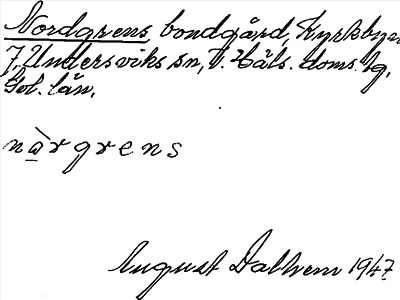 Nordgrens bondgård, Kyrkbyn
7, Undersviks sn, V. Häls. doms. tg,
Gvl. län.
nàrgrens
August Dalhem 1947